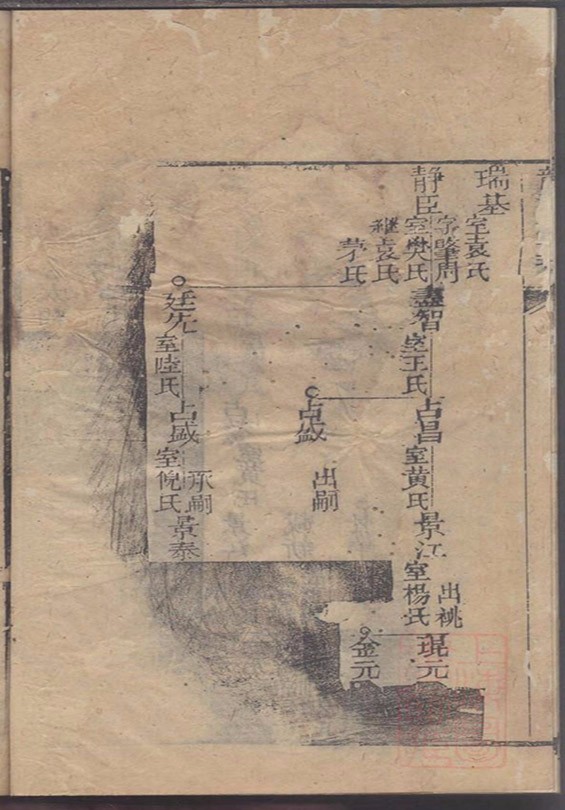 瑞基
室袁氏
静臣
字肇周
室樊氏
繼袁氏
茅氏
盡智
室王氏
廷先
室陸氏
占昌
室黃氏
占盛
出嗣
占盛
承嗣
室倪氏
景江
出祧
室楊氏
景泰
琨元
金元